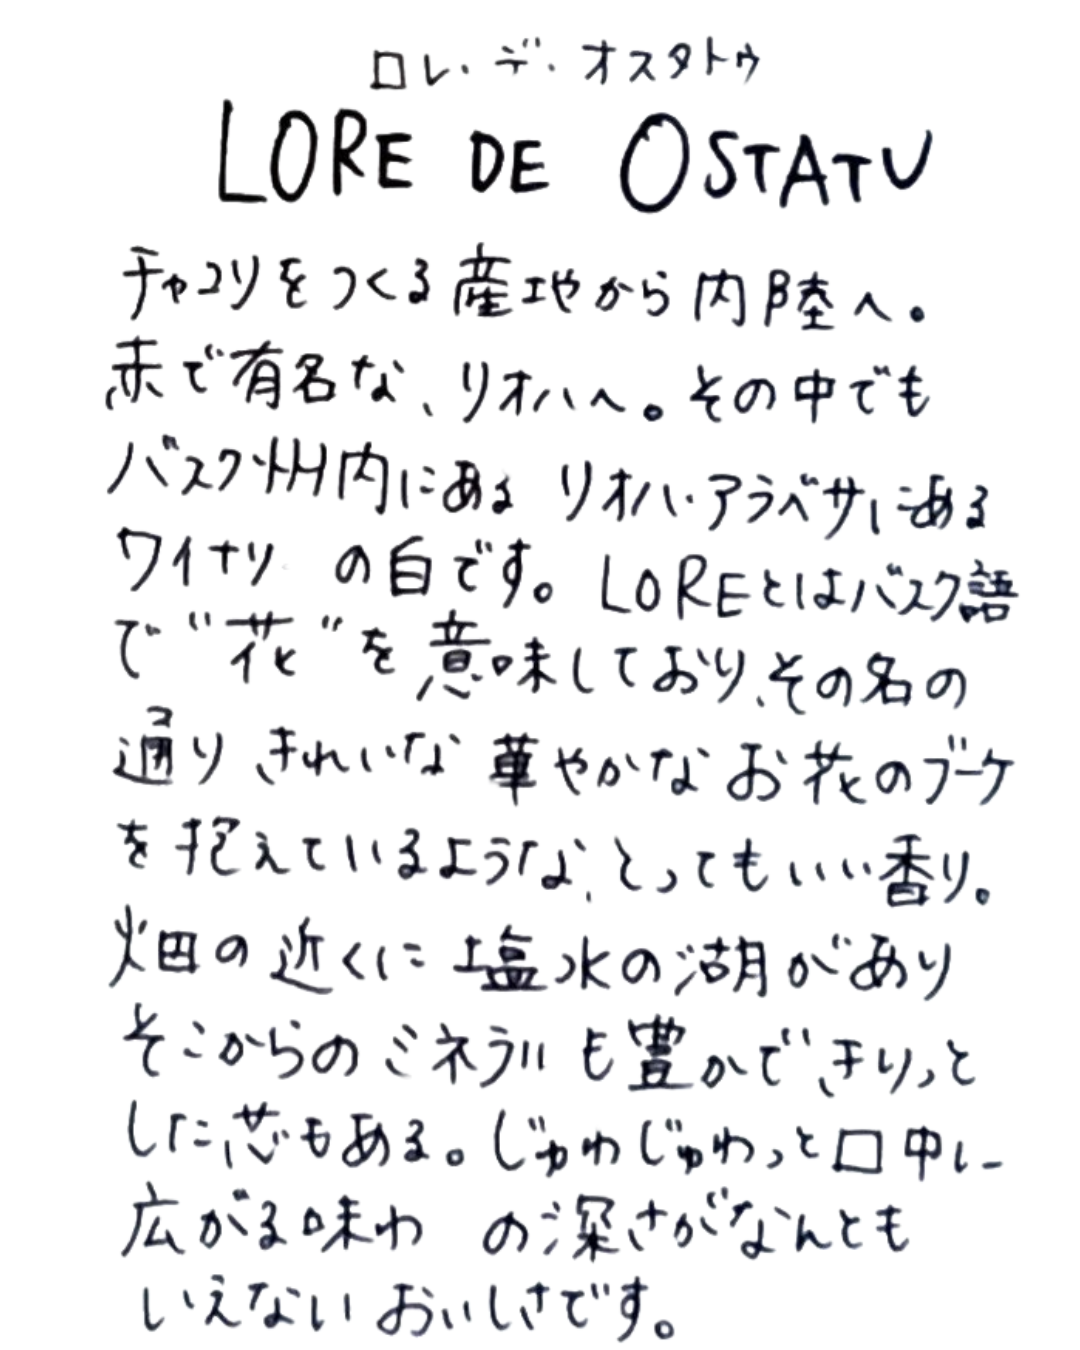 ロレ・デ・オスタトゥ
LORE DE OSTATU
チャコリをつくる産地から内陸へ。
赤で有名な、リオハへ。その中でも
バスク州内にある リオハ・アラベサにある
ワイナリ の白です。LOREとはバスク語
で"花"を意味しており、その名の
通り きれいな 華やかな お花のブーケ
を抱えているような、とってもいい香り。
畑の近くに塩水の湖があり
そこからのミネラルも豊かできりっと
した芯もある。じゅわじゅわっと口中に
広がる味わ の深さがなんとも
いえないおいしさです。